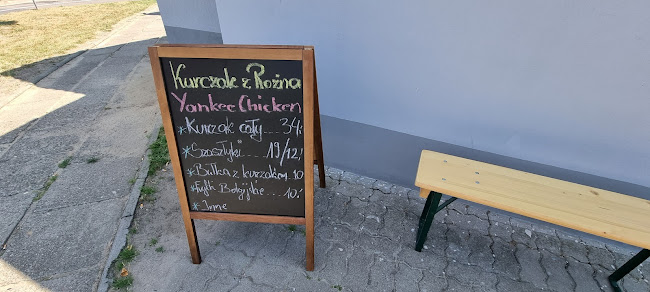 Kurczak z Rożna
Yankee Chicken
* Kurczak cały .... 34.-
* Szaszłyki .... 19/12.-
* Bułka z kurczakiem 10
* Frytki Belgijskie .... 10.-
* Inne